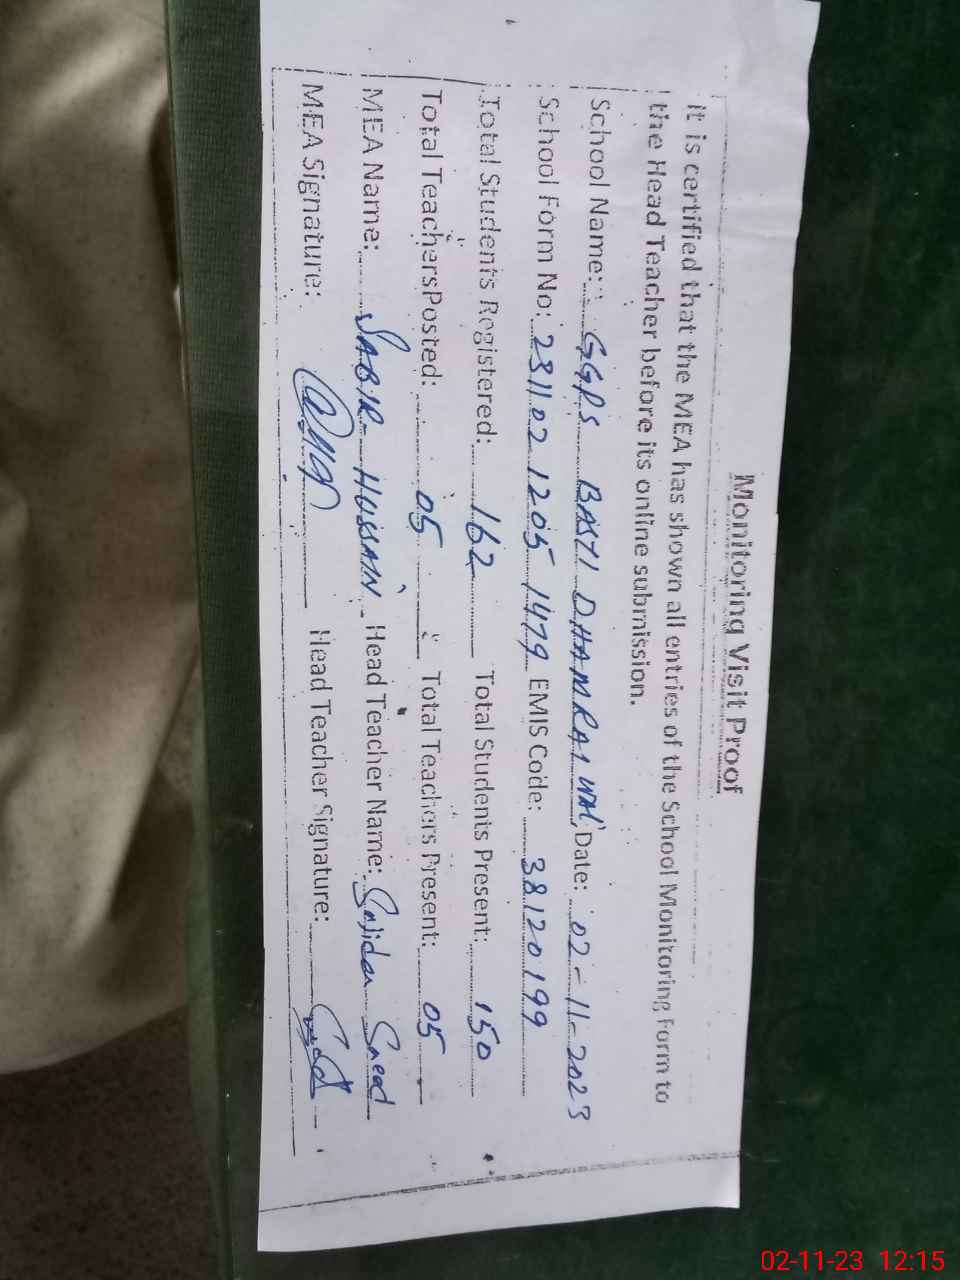 Monitoring Visit Proof
It is certified that the MEA has shown all entries of the School Monitoring Form to
the Head Teacher before its online submission.
School Name: GGPS BASTI DHAMRAI WALI Date: 02-11-2023
School Form No: 231102 1205 1479 EMIS Code: 38120199
Total Students Registered: 162 Total Students Present: 150
Total Teachers Posted: 05 Total Teachers Present: 05
MEA Name: SABIR HUSSAIN Head Teacher Name: Sajida Saeed
MEA Signature: Head Teacher Signature:
02-11-23 12:15